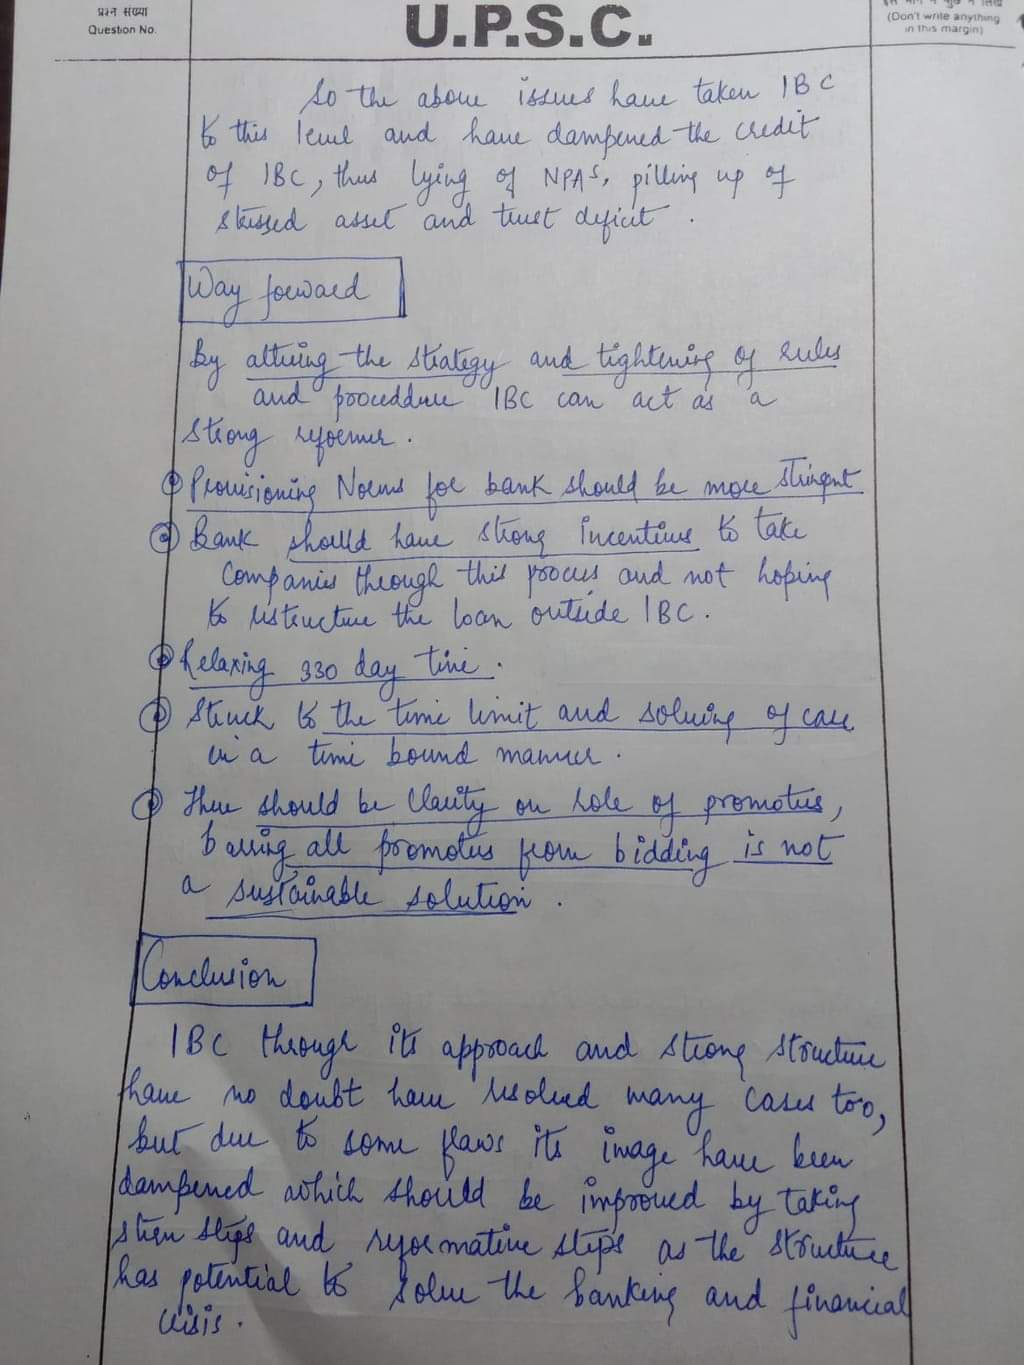 प्रश्न संख्या
Question No.
U.P.S.C.
(Don't write anything
in this margin)
So the above issues have taken IBC
to this level and have dampened the credit
of IBC, thus lying of NPAs, pilling up of
stressed asset and trust deficit.
Way forward
By altering the strategy and tightening of rules
and proceddure IBC can act as a
strong reformer.
Provisioning Norms for bank should be more stringent
Bank should have strong incentives to take
companies through this process and not hoping
to restructure the loan outside IBC.
Relaxing 330 day time.
Struck to the time limit and solving of case
in a time bound manner.
There should be clarity on role of promoters,
barring all promoters from bidding is not
a sustainable solution.
Conclusion
IBC through its approach and strong structure
have no doubt have resolved many cases too,
but due to some flaws its image have been
dampened which should be improved by taking
stern steps and reformative steps as the structure
has potential to solve the banking and financial
crisis.